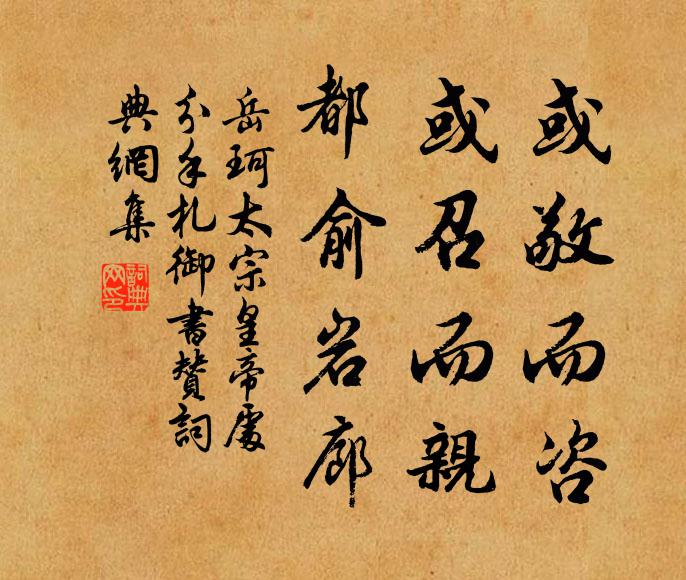 或敬而咨
或召而親
都俞岩廊
岳珂太宗皇帝處
分手札御書贊詞
典網集
詞典網印